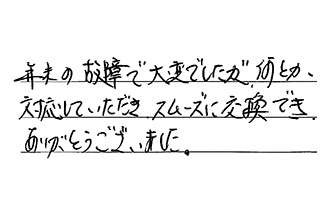 年末の故障で大変でしたが何とか、
対応していただき スムーズに交換でき
ありがとうございました。